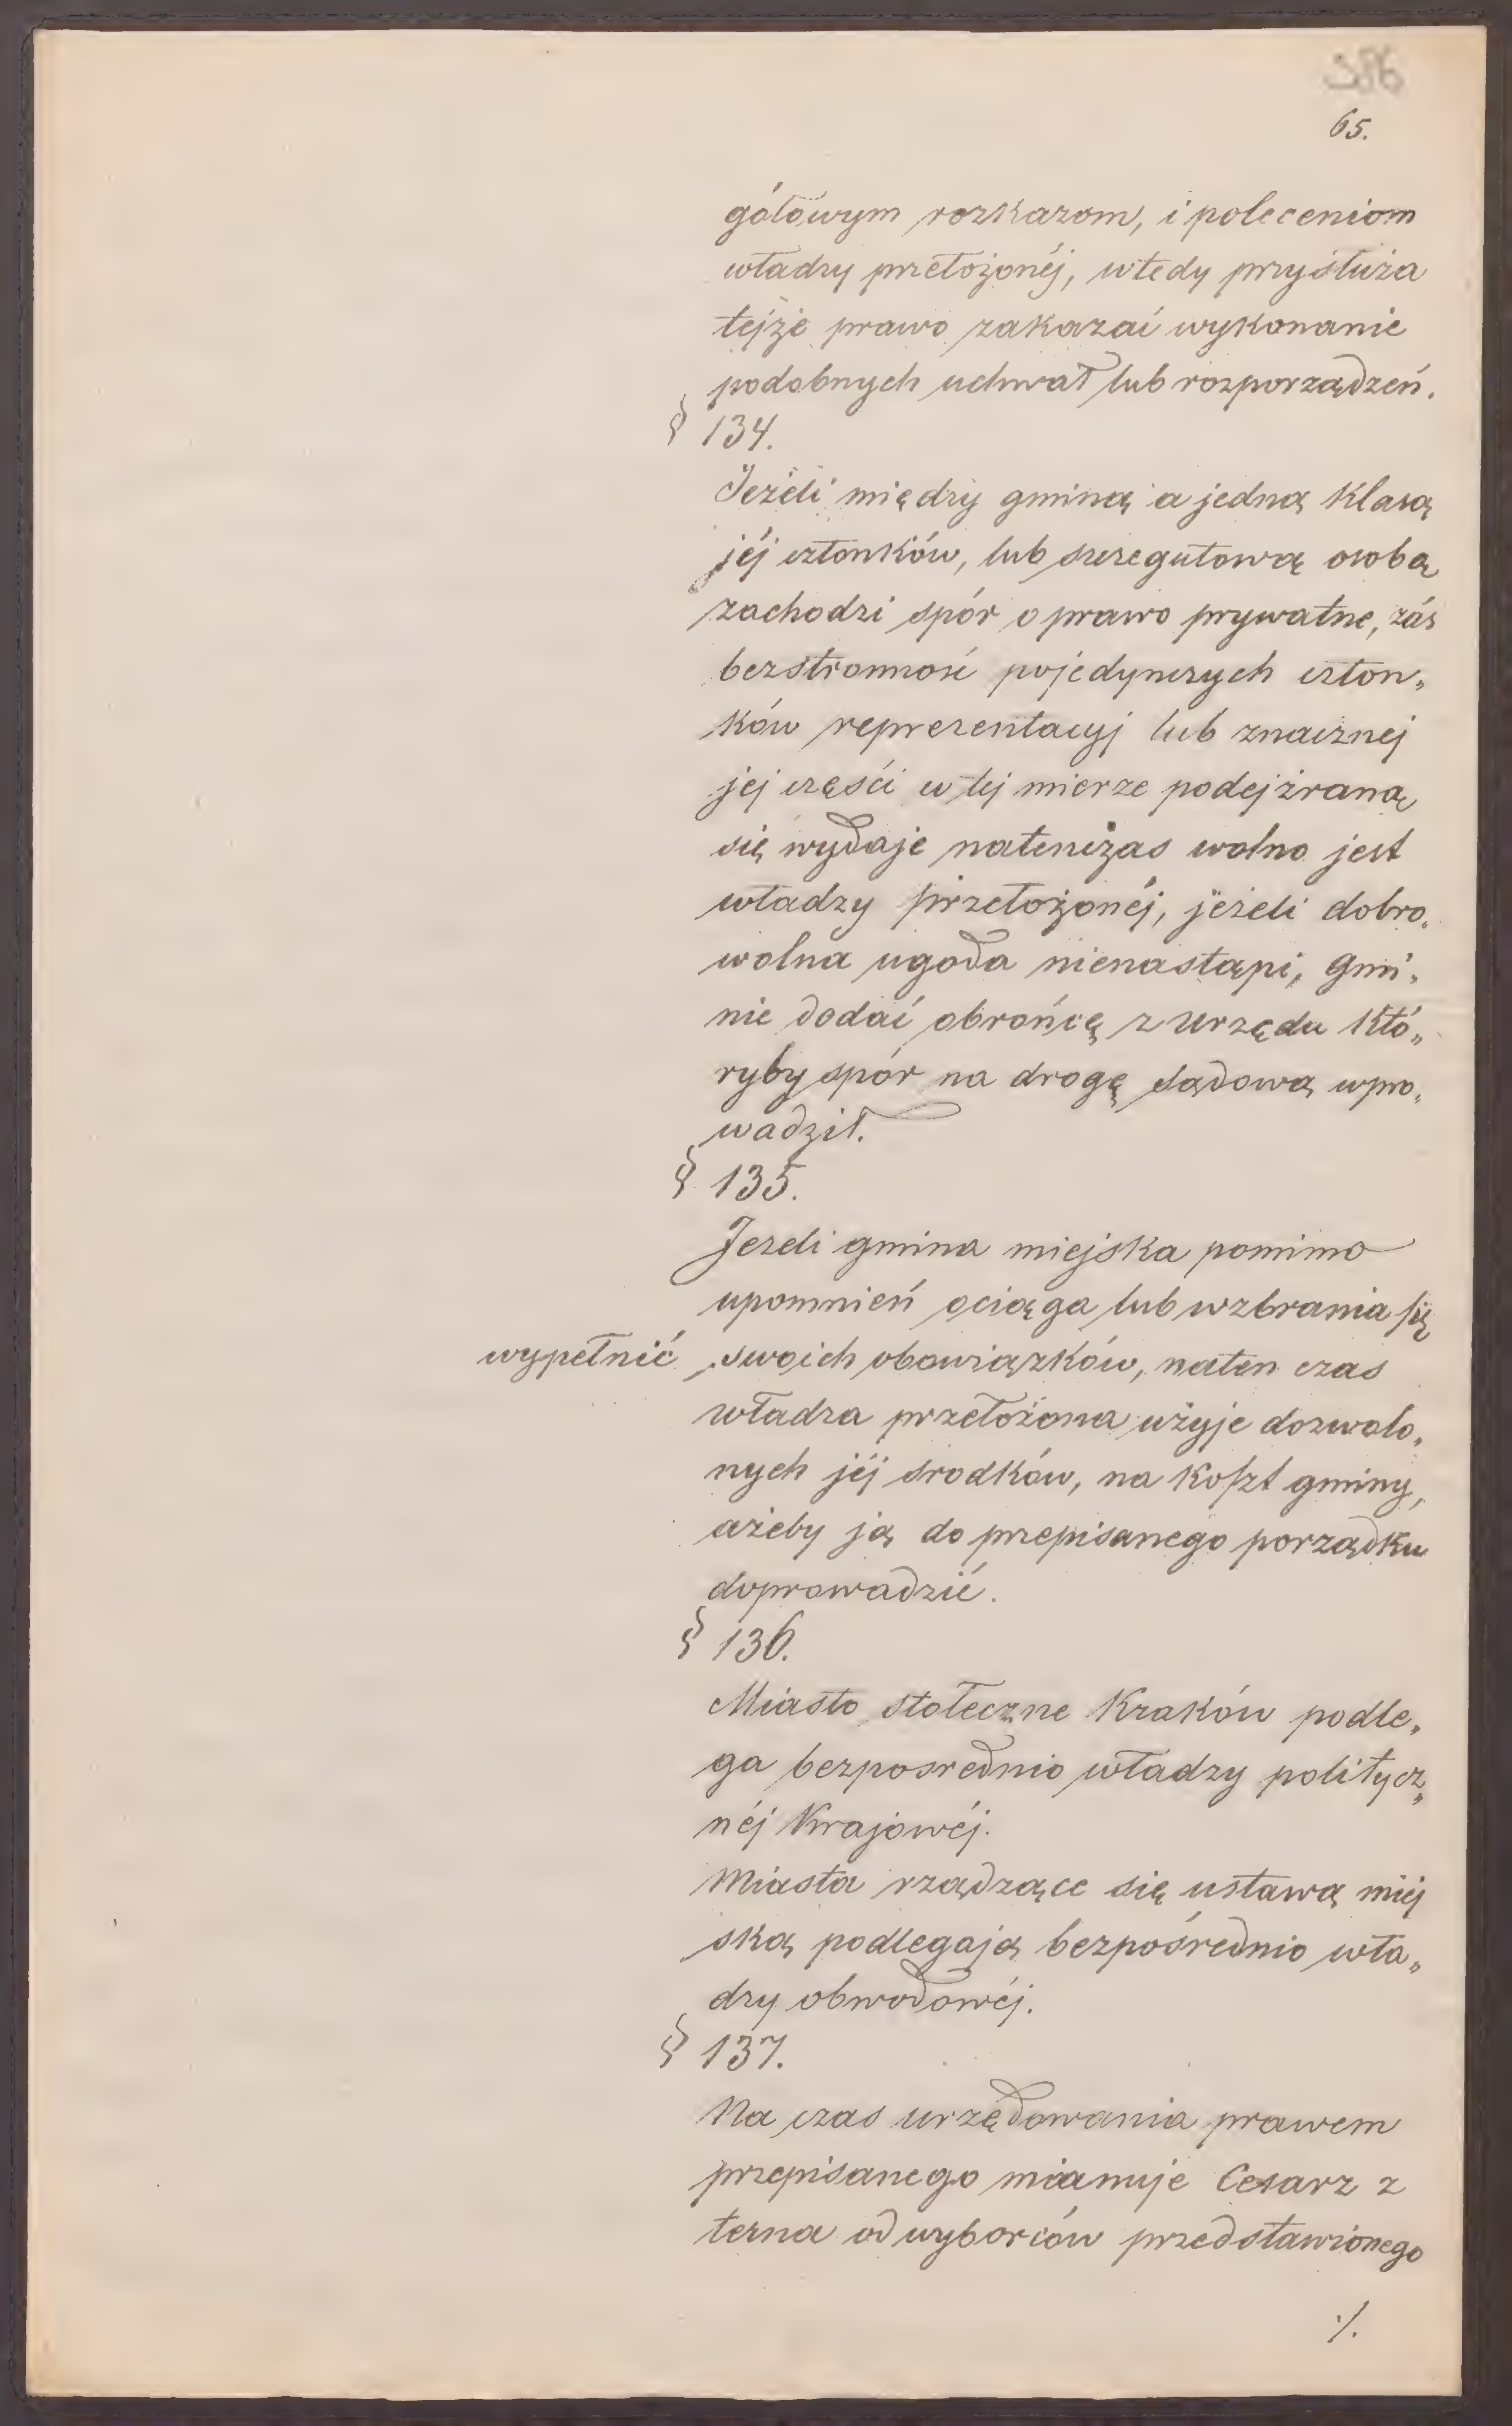 386
65.
gółowym rozkazom, i poleceniom
władzy przełożonéj, wtedy przysłuża
tejże prawo zakazać wykonanie
podobnych uchwał lub rozporządzeń.
§ 134.
Jeżeli między gminą a jedną klasą
jéj członków, lub szczegułową osobą
zachodzi spór o prawo prywatne, zás
bezstronność pojedynczych człon„
ków reprezentacyj lub znacznej
jej części w tej mierze podejżraną
się wydaje natenczas wolno jest
władzy przełożonéj, jeżeli dobro„
wolna ugoda nienastąpi, Gmi„
nie dodać obrońcę z Urzędu któ„
ryby spór na drogę sądową wpro„
wadził.
§ 135.
Jezeli gmina miejska pomimo
upomnień ociąga lub wzbrania się
wypełnić swoich obowiązków, naten czas
władza przełożona użyje dozwolo„
nych jéj srodków, na koszt gminy,
ażeby ją do przepisanego porządku
doprowadzić.
§ 136.
Miasto stołeczne Kraków podle„
ga bezposrednio władzy politycz„
néj Krajowéj.
Miasta rządzące się ustawą miej
ską podlegają bezpośrednio wła„
dzy obwodowéj.
§ 137.
Na czas urzędowania prawem
przepisanego mianuje Cesarz z
terna od wyborców przedstawionego
·/.